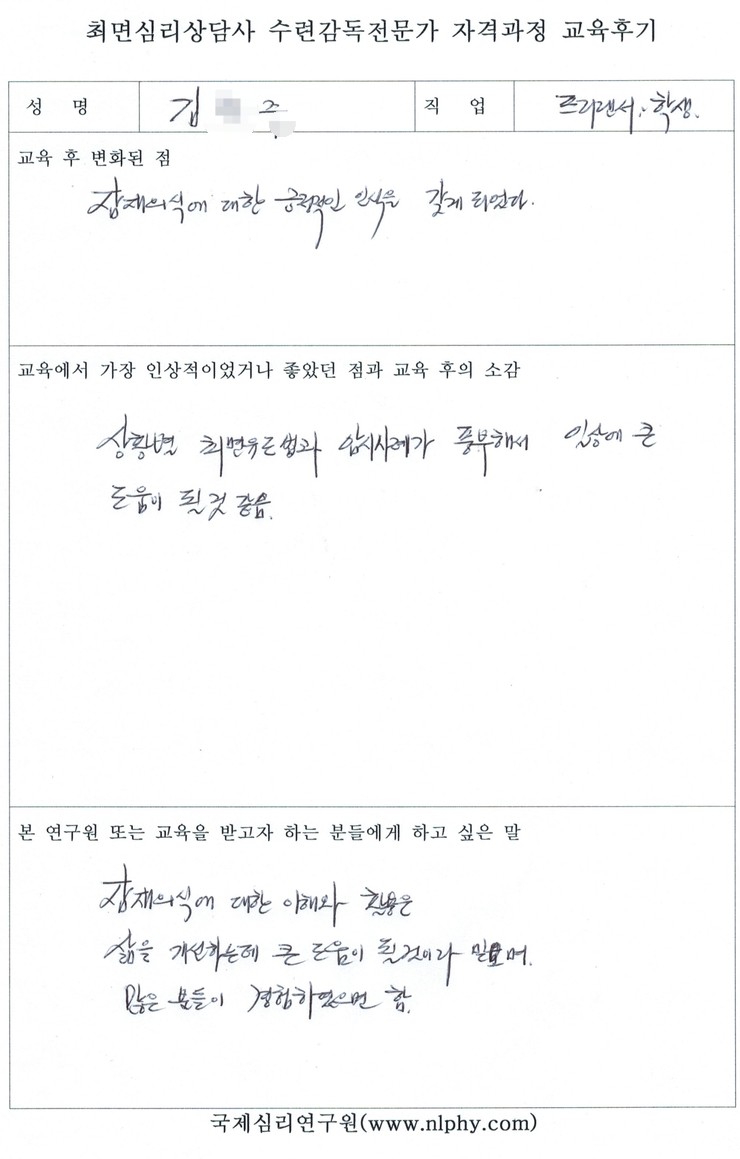 최면심리상담사 수련감독전문가 자격과정 교육후기
성 명 김 주 직 업 프리랜서, 학생.
교육 후 변화된 점
잠재의식에 대한 긍정적인 인식을 갖게 되었다.
교육에서 가장 인상적이었거나 좋았던 점과 교육 후의 소감
상황별 최면유도법과 암시사례가 풍부해서 일상에 큰
도움이 될것 같음.
본 연구원 또는 교육을 받고자 하는 분들에게 하고 싶은 말
잠재의식에 대한 이해와 활용은
삶을 개선하는데 큰 도움이 될것이라 믿으며.
많은 분들이 경험하였으면 함.
국제심리연구원(www.nlphy.com)